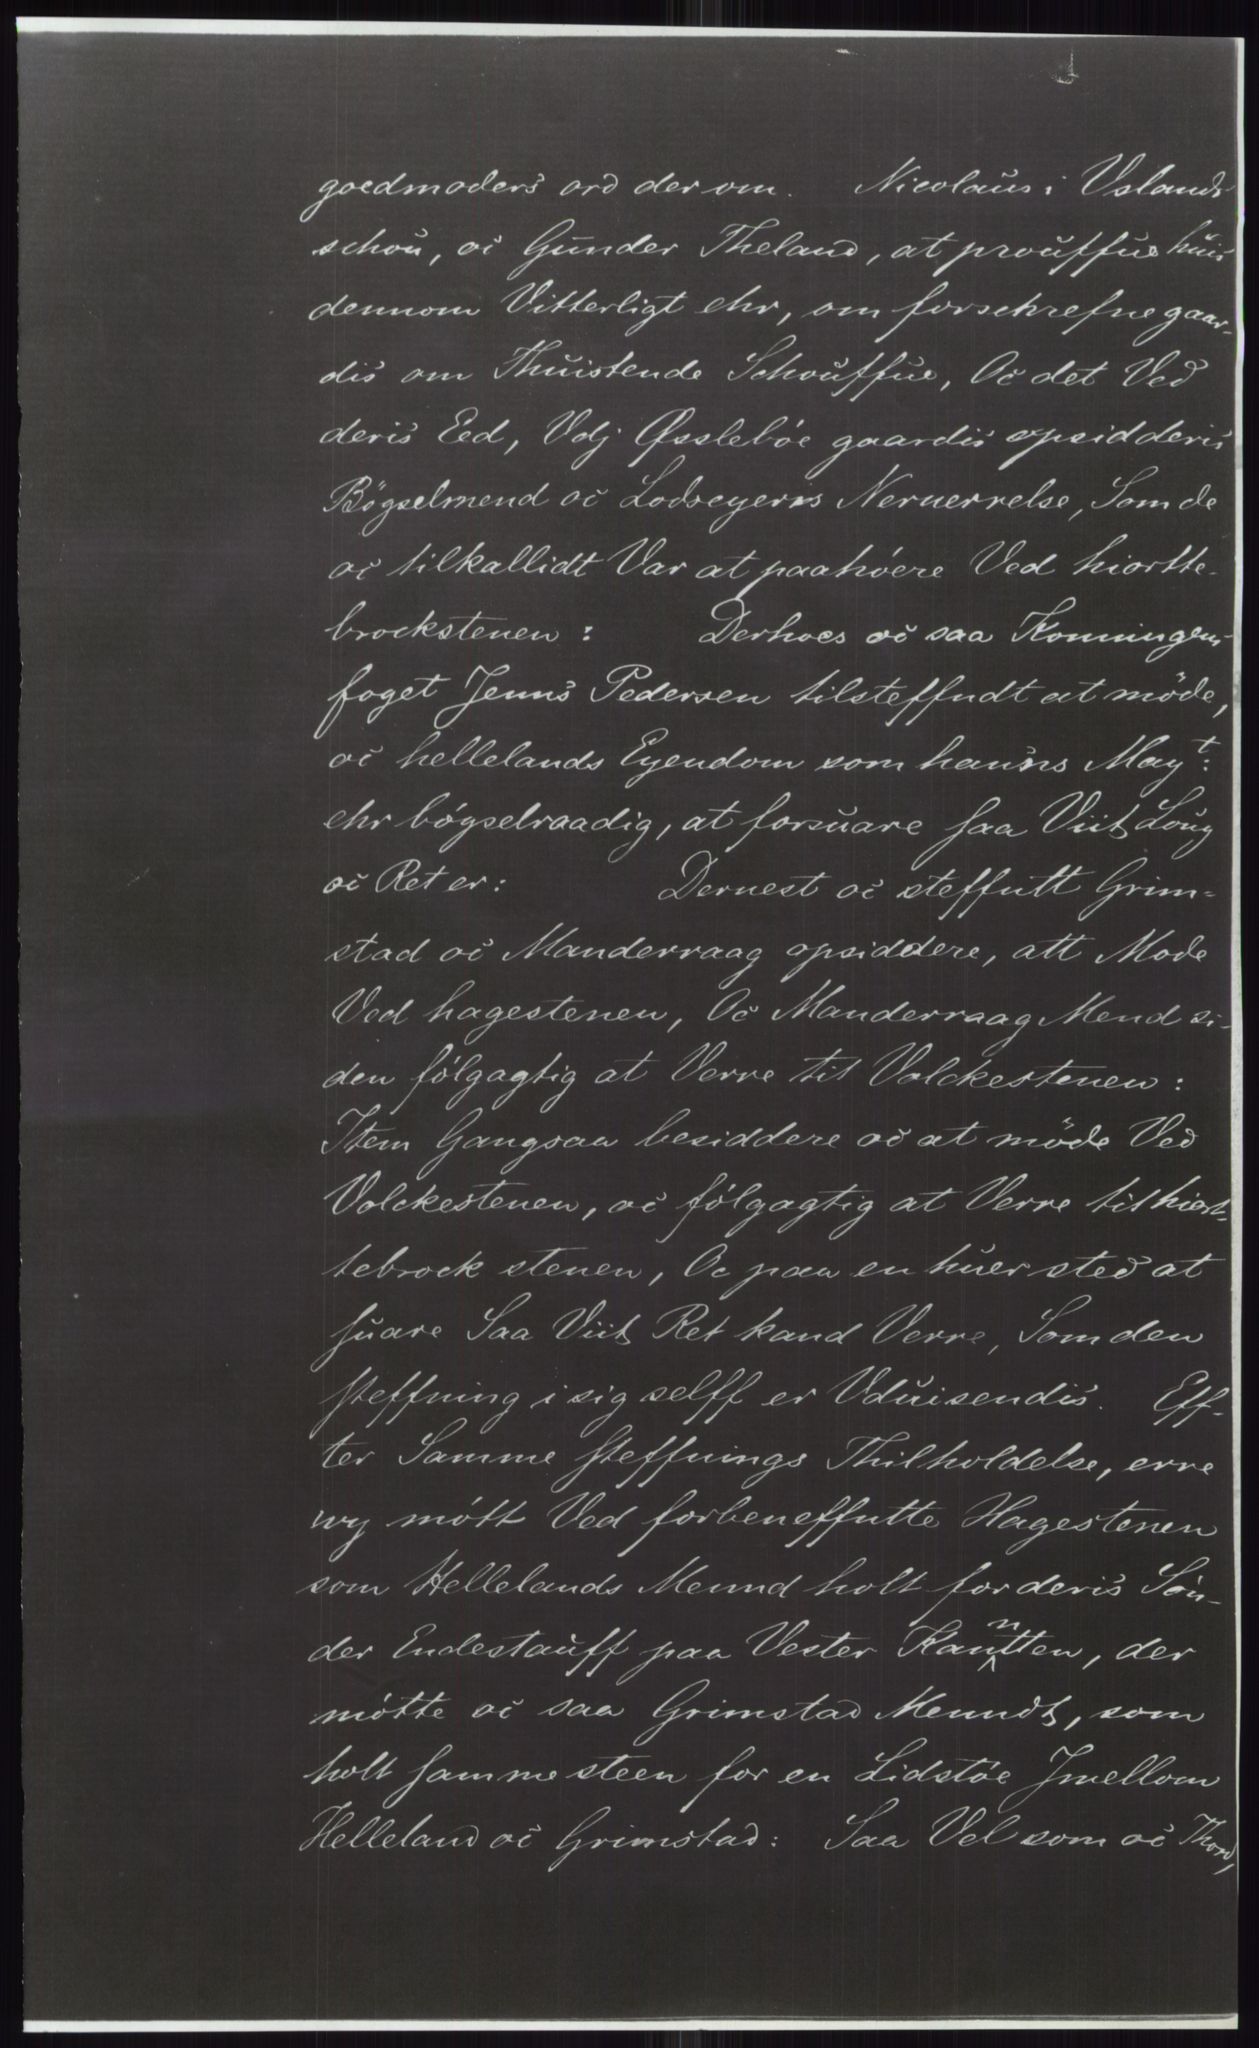 goedmoders ord der om. Nicolaus i Uslands
schou, oc Gunder Theland, at prouffue huis
dennom Vitterligt ehr, om forschrefne gaar-
dis om Thuistende Schouffue, Oc det Ved
deris Eed, Udj Øsslebøe gaardis opsidderis
Bögselmend oc Lodseyers Neruerrelse, Som de
oc tilkallidt Var at paahøere Ved hiortte-
brockstenen: Derhoes oc saa Konningens
foget Jenns Pedersen tilsteffndt at møde,
oc hellelands Eyendom som hanns Mayt:
ehr bøgselraadig, at forsuare saa Viit Loug
oc Ret er: Dernest oc steffntt Grim-
stad oc Manderraag opsiddere, att Møde
Ved hagestenen, Oc Manderraag Mend si-
den følgagtig at Verre til Volckestenen:
Item Gangsaa besiddere oc at møde Ved
Volckestenen, oc følgagtig at Verre til hiort-
tebrock stenen, Oc paa en huer sted at
suare Saa Viit Ret kand Verre, Som den
steffning i sig selff er Uduisendis. Eff-
ter Samme steffnings Thilholdelse, erre
wy møtt Ved forbeneffntte Hagestenen
som Hellelands Mennd holt for deris Søn-
der Endestauff paa Vester Kanntten, der
møtte oc saa Grimstad Menndt, som
holt samme steen for en Lidstøe Jmellom
Helleland oc Grimstad: Saa Vel som oc Thord,